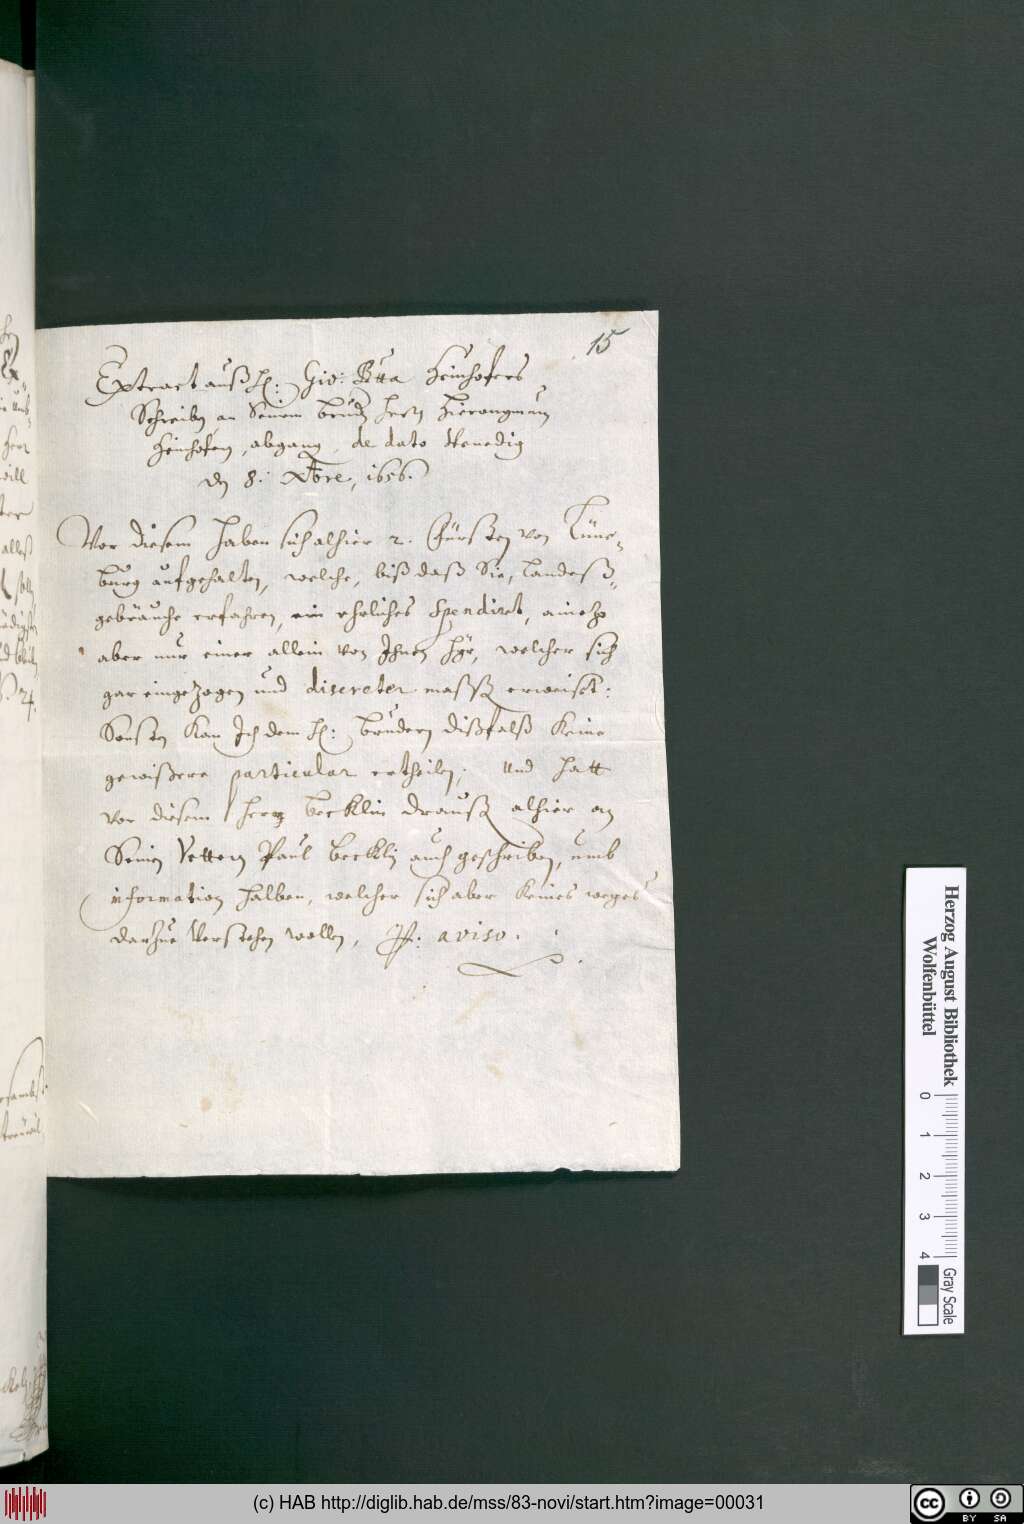 15
Extract auß H: Gio: Btta Hainhofers
Schreiben an Seinem Bruder Herrn Hieronymum
Hainhofern, abgang, de dato Venedig
den 8: Xbre, 1656.
Vor diesem haben sich alhier 2. Fürsten von Lüne-
burg aufgehalten, welche, biß daß Sie, Landeß-
gebräuche erfahren, ein ehrliches spendirt,
aber nur einer allein von Ihnen hier, welcher sich
gar eingezogen und discreter erweist:
Sonsten kan Ich dem H: Brudern dißfalß keine
gewißere particular ertheilen, und hatt
vor diesem Herr Becklin drauß alhier an
Seinen Vettern Paul Becklin auch geschriben, umb
information halben, welcher sich aber keines weges
darzue Verstehen wollen, aviso.
Herzog August Bibliothek
Wolfenbüttel
0 1 2 3 4
Gray Scale
(c) HAB http://diglib.hab.de/mss/83-novi/start.htm?image=00031
cc BY SA